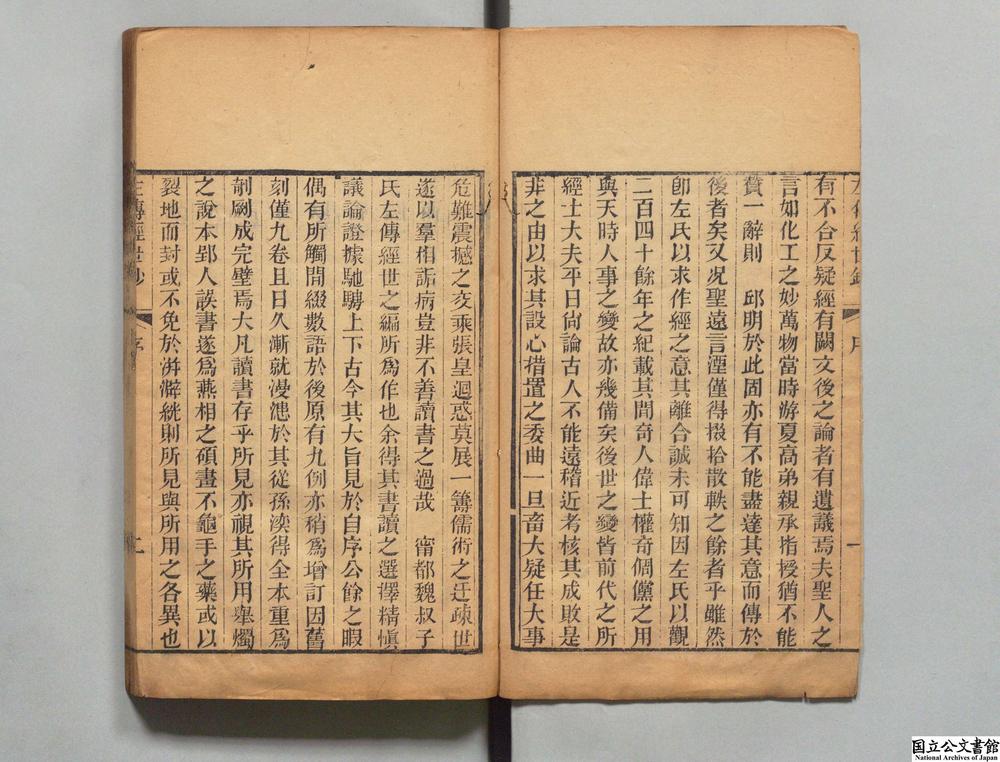 有不合反疑經有闕文後之論者有遺議焉夫聖人之
言如化工之妙萬物當時游夏高弟親承指授猶不能
贊一辭則 邱明於此固亦有不能盡達其意而傳於
後者矣又况聖遠言湮僅得掇拾散軼之餘者乎雖然
卽左氏以求作經之意其離合誠未可知因左氏以觀
二百四十餘年之紀載其間奇人偉士權奇倜儻之用
與天時人事之變故亦幾備矣後世之變皆前代之所
經士大夫平日尙論古人不能遠稽近考核其成敗是
非之由以求其設心措置之委曲一旦畜大疑任大事
危難震撼之交乘張皇迴惑莫展一籌儒術之迂疎世
遂以羣相詬病豈非不善讀書之過哉 甯都魏叔子
氏左傳經世之編所爲作也余得其書讀之選擇精愼
議論證據馳騁上下古今其大旨見於自序公餘之暇
偶有所觸間綴數語於後原有九例亦稍爲增訂因舊
刻僅九卷且日久漸就漫漶於其從孫渙得全本重爲
剞劂成完璧焉大凡讀書存乎所見亦視其所用舉燭
之說本郢人誤書遂爲燕相之碩畫不龜手之藥或以
裂地而封或不免於洴澼絖則所見與所用之各異也
左傳經世鈔 序 二
国立公文書館
National Archives of Japan